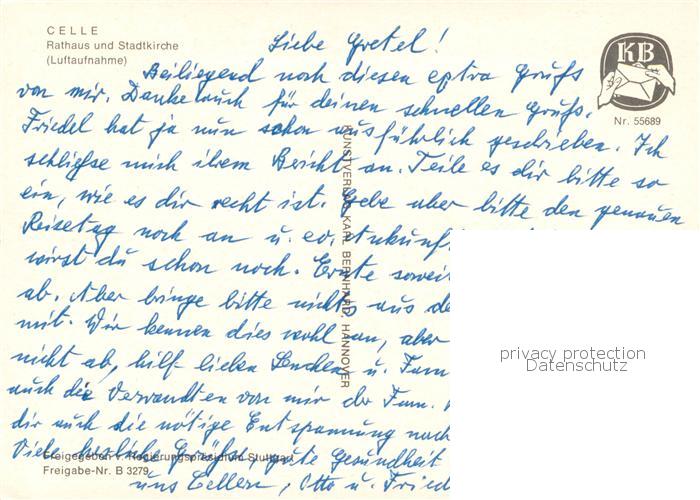 CELLE
Rathaus und Stadtkirche
(Luftaufnahme)
KB
Nr. 55689
Liebe Gretel!
Beiliegend noch diesen extra Gruß
von mir. Danke auch für deinen schnellen Gruß.
Friedel hat ja nun schon ausführlich geschrieben. Ich
schließe mich ihrem Bericht an. Teile es dir bitte so
ein, wie es dir recht ist. Gebe aber bitte den genauen
Reisetag noch an u. ev. Ankunf
wirst du schon noch. Ernte soweit
ab. Aber bringe bitte nichts aus de
mit. Wir kennen dies wohl an, aber
nicht ab, hilf lieben u. Fam
auch die Verwandten von mir der Fam.
dir auch die nötige Entspannung noch
Viele herzliche Grüße, gute Gesundheit
uns Cellern, Otto u. Fried
KUNSTVERLAG KARL BERNHARD, HANNOVER
Freigegeben v. Regierungspräsidium Stuttgart
Freigabe-Nr. B 3279
privacy protection
Datenschutz